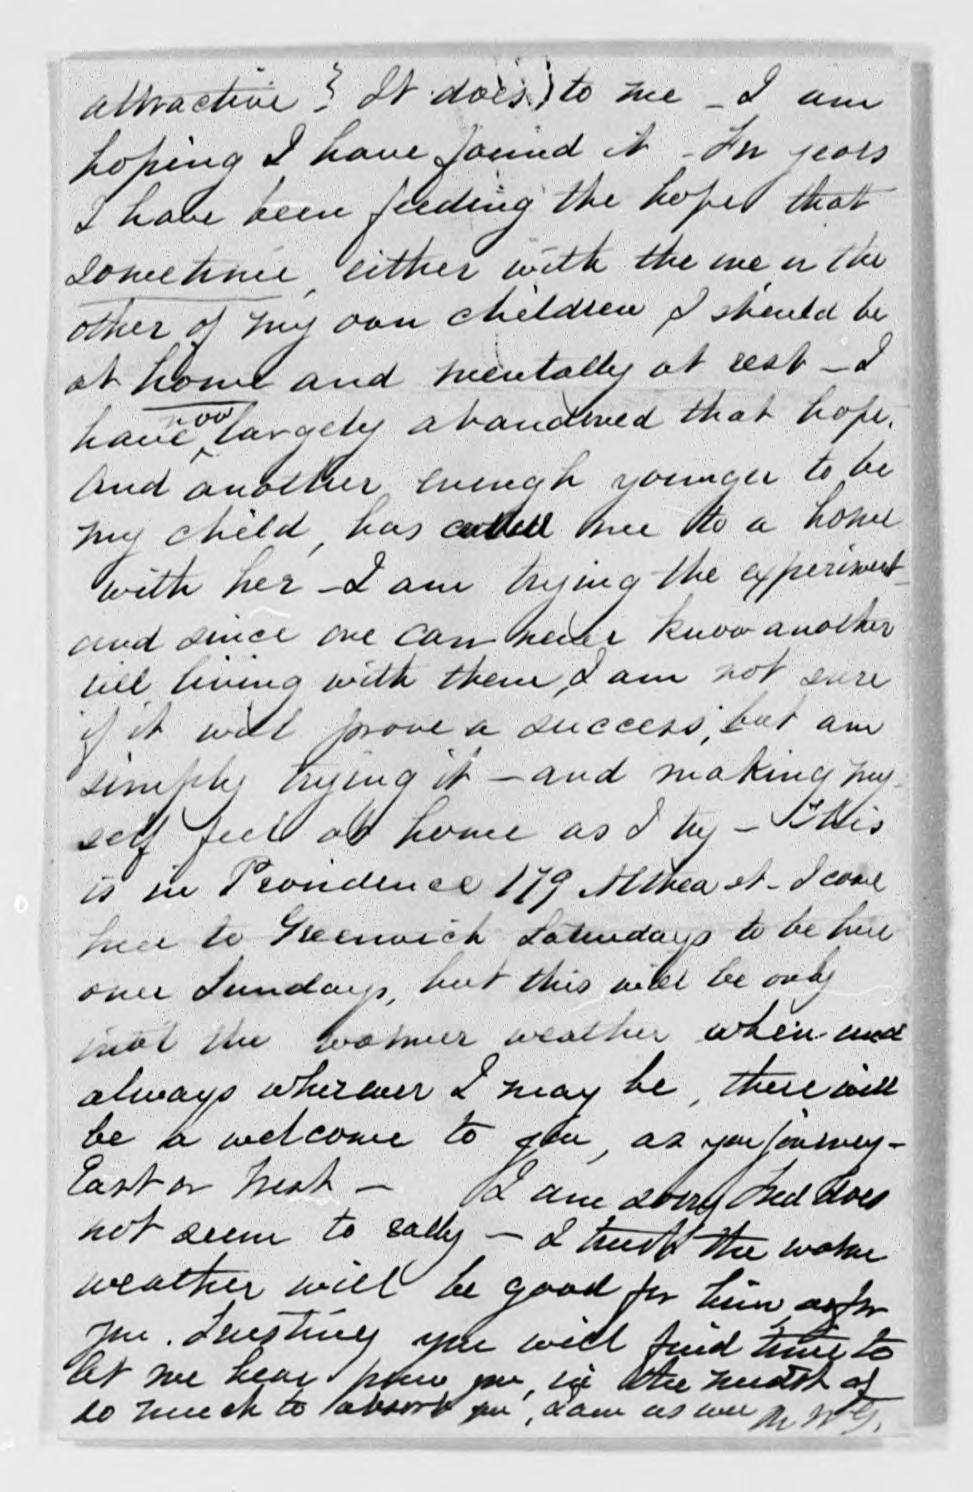 attractive? It does to me - I am
hoping I have found it - For years
I have been feeding the hope that
sometime, either with the one or the
other of my own children I should be
at home and mentally at rest - I
have now largely abandoned that hope.
And another enough younger to be
my child, has called me to a home
with her - I am trying the experiment -
and since one can never know another
till living with them, I am not sure
if it will prove a success, but am
simply trying it - and making my-
self feel at home as I try - This
is in Providence 179 Althea st - I come
here to Greenwich Saturdays to be here
over Sundays, but this will be only
until the warmer weather when and
always wherever I may be, there will
be a welcome to you, as you journey -
East or West - I am sorry Fred does
not seem to rally - I trust the warm
weather will be good for him, as for
you. Trusting you will find time to
let me hear from you, in the midst of
so much to absorb you, I am as ever